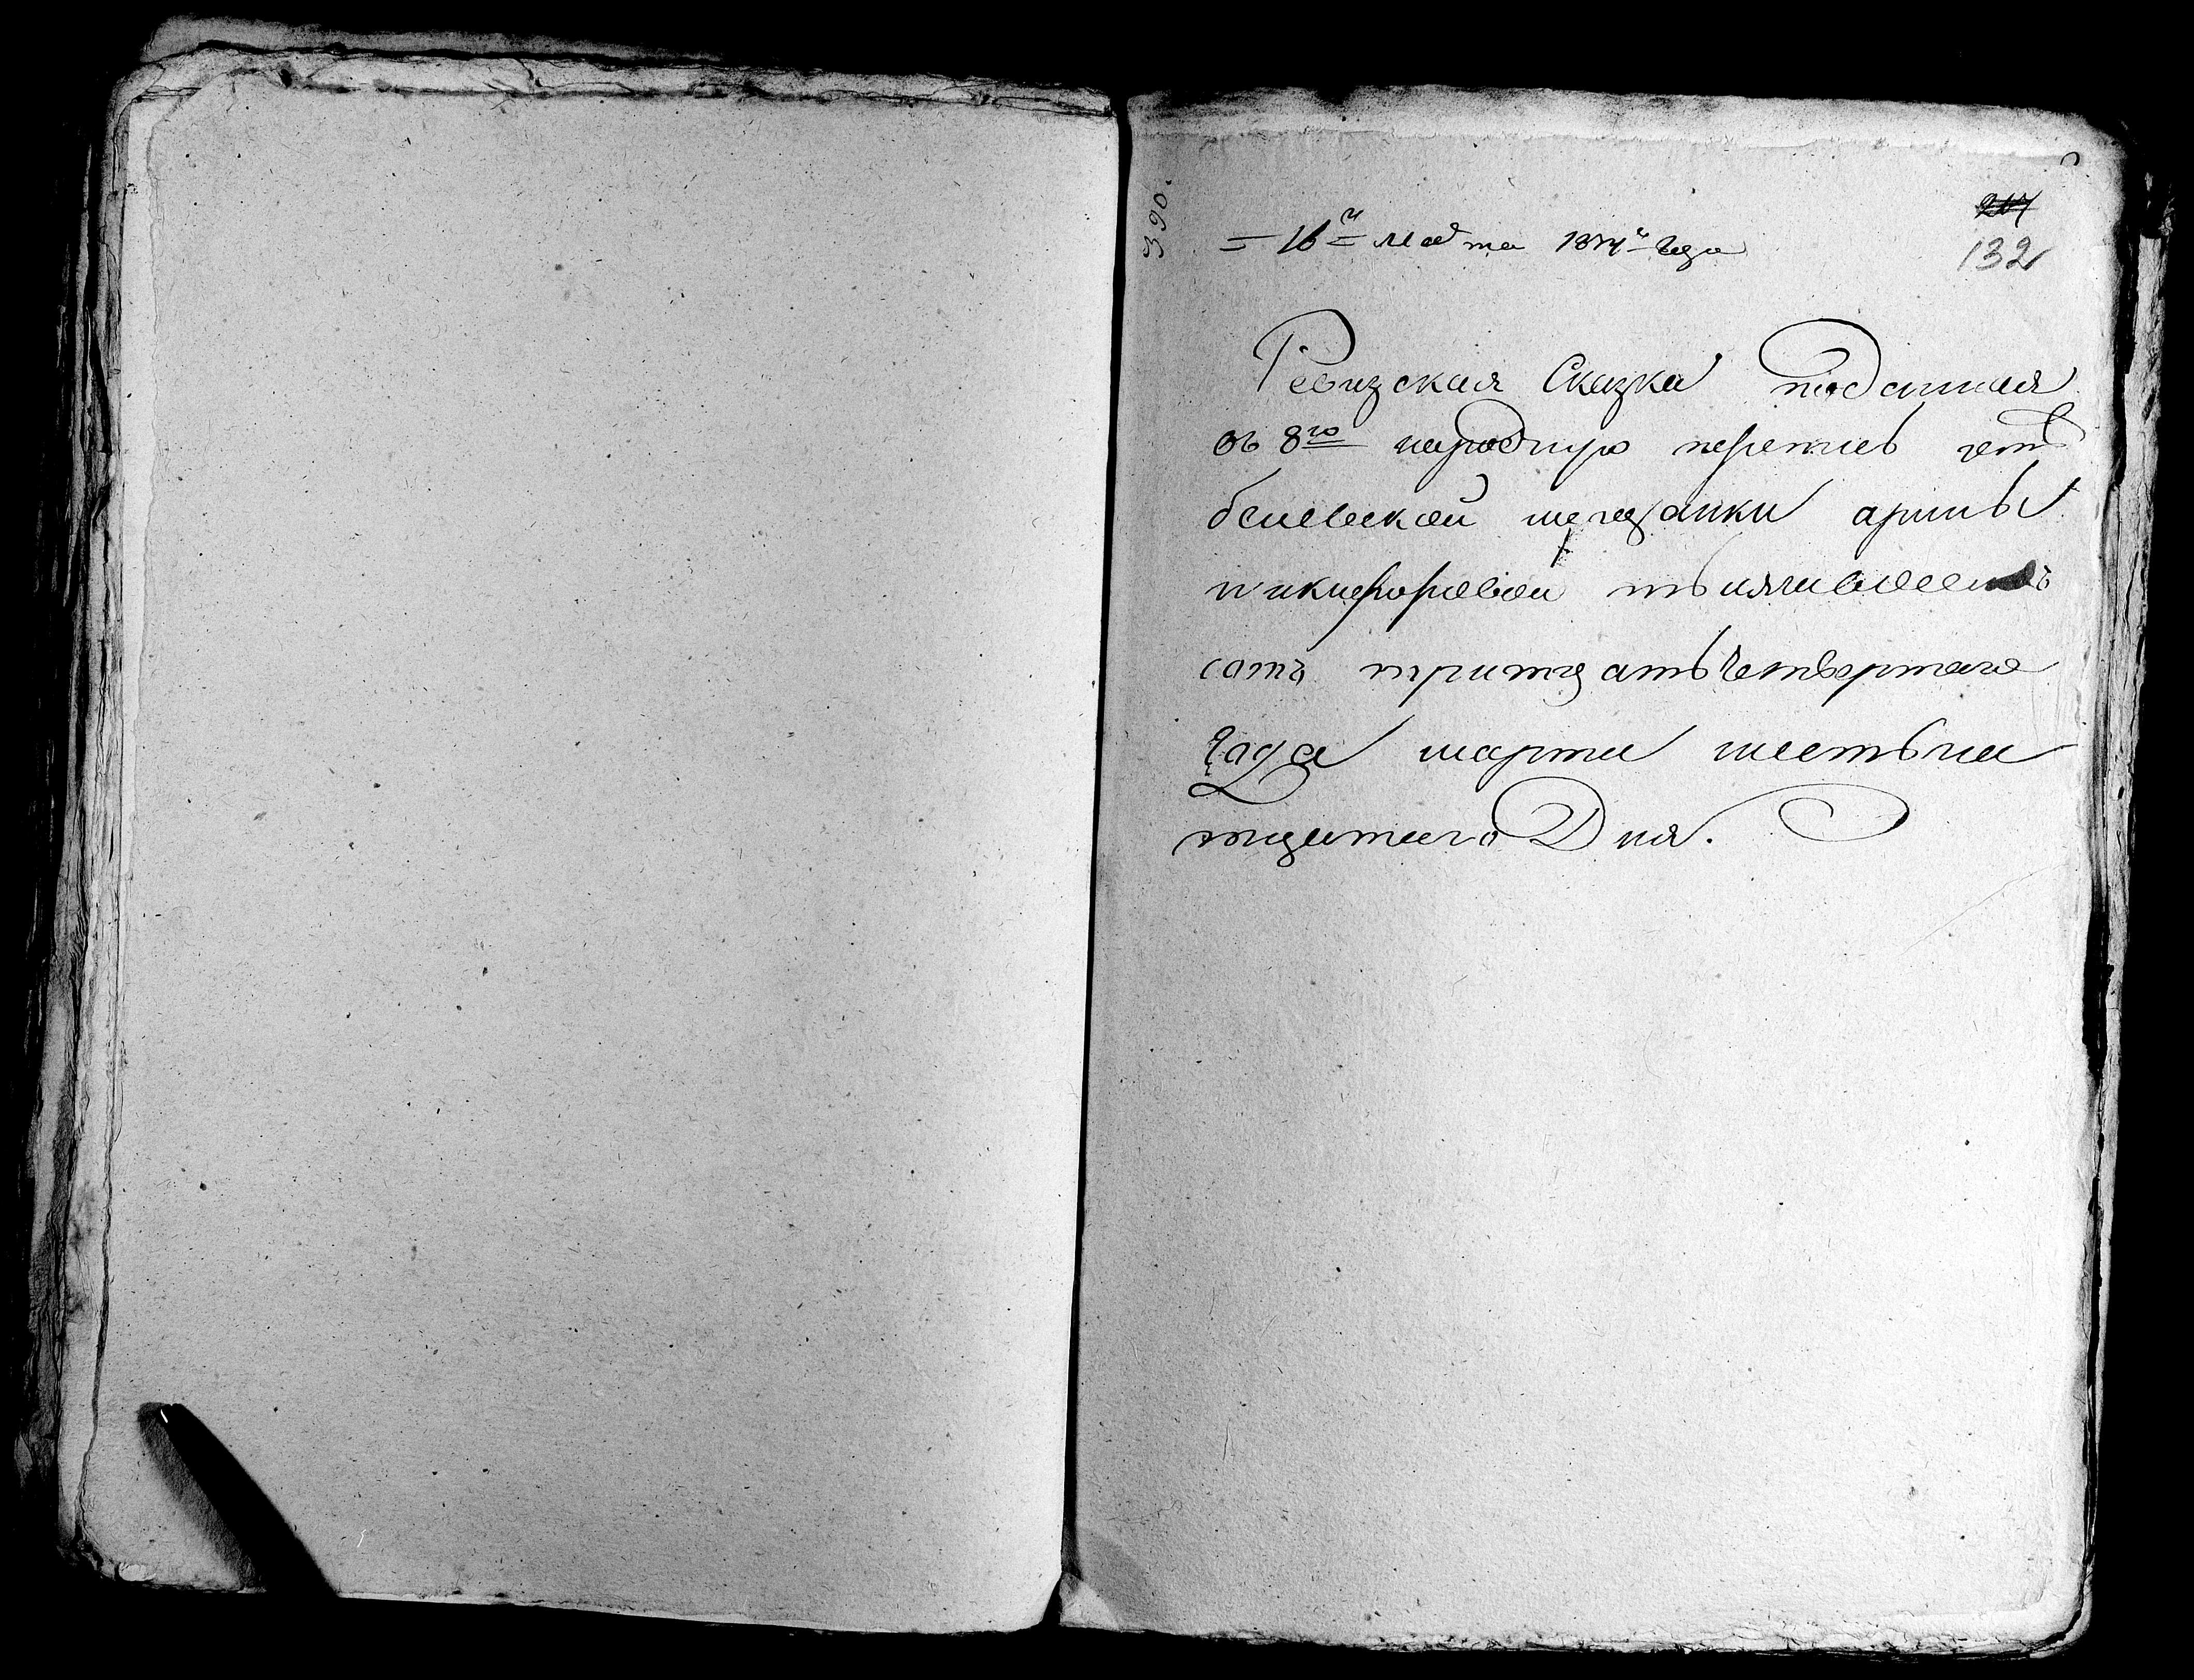 390.
217
= 16го марта 1834го года
132
Ревизская Сказка поданная
въ 8ю народную перепись
белевской мещанки арины
никифоровой тысяча восемь
сотъ тритцать четвертаго
года марта шестьна
тцатаго Дня.